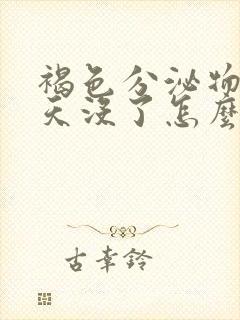 褐色分泌物
天沒了怎麼
古幸鈴